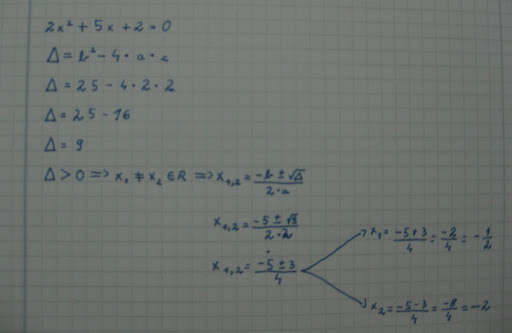 2x² + 5x + 2 = 0
Δ = b² - 4 · a · c
Δ = 25 - 4 · 2 · 2
Δ = 25 - 16
Δ = 9
Δ > 0 ⟹ x₁ ≠ x₂ ∈ R ⟹ x₁,₂ = (-b ± √Δ)/(2 · a)
x₁,₂ = (-5 ± √9)/(2 · 2)
x₁,₂ = (-5 ± 3)/4
x₁ = (-5 + 3)/4 = -2/4 = -1/2
x₂ = (-5 - 3)/4 = -8/4 = -2